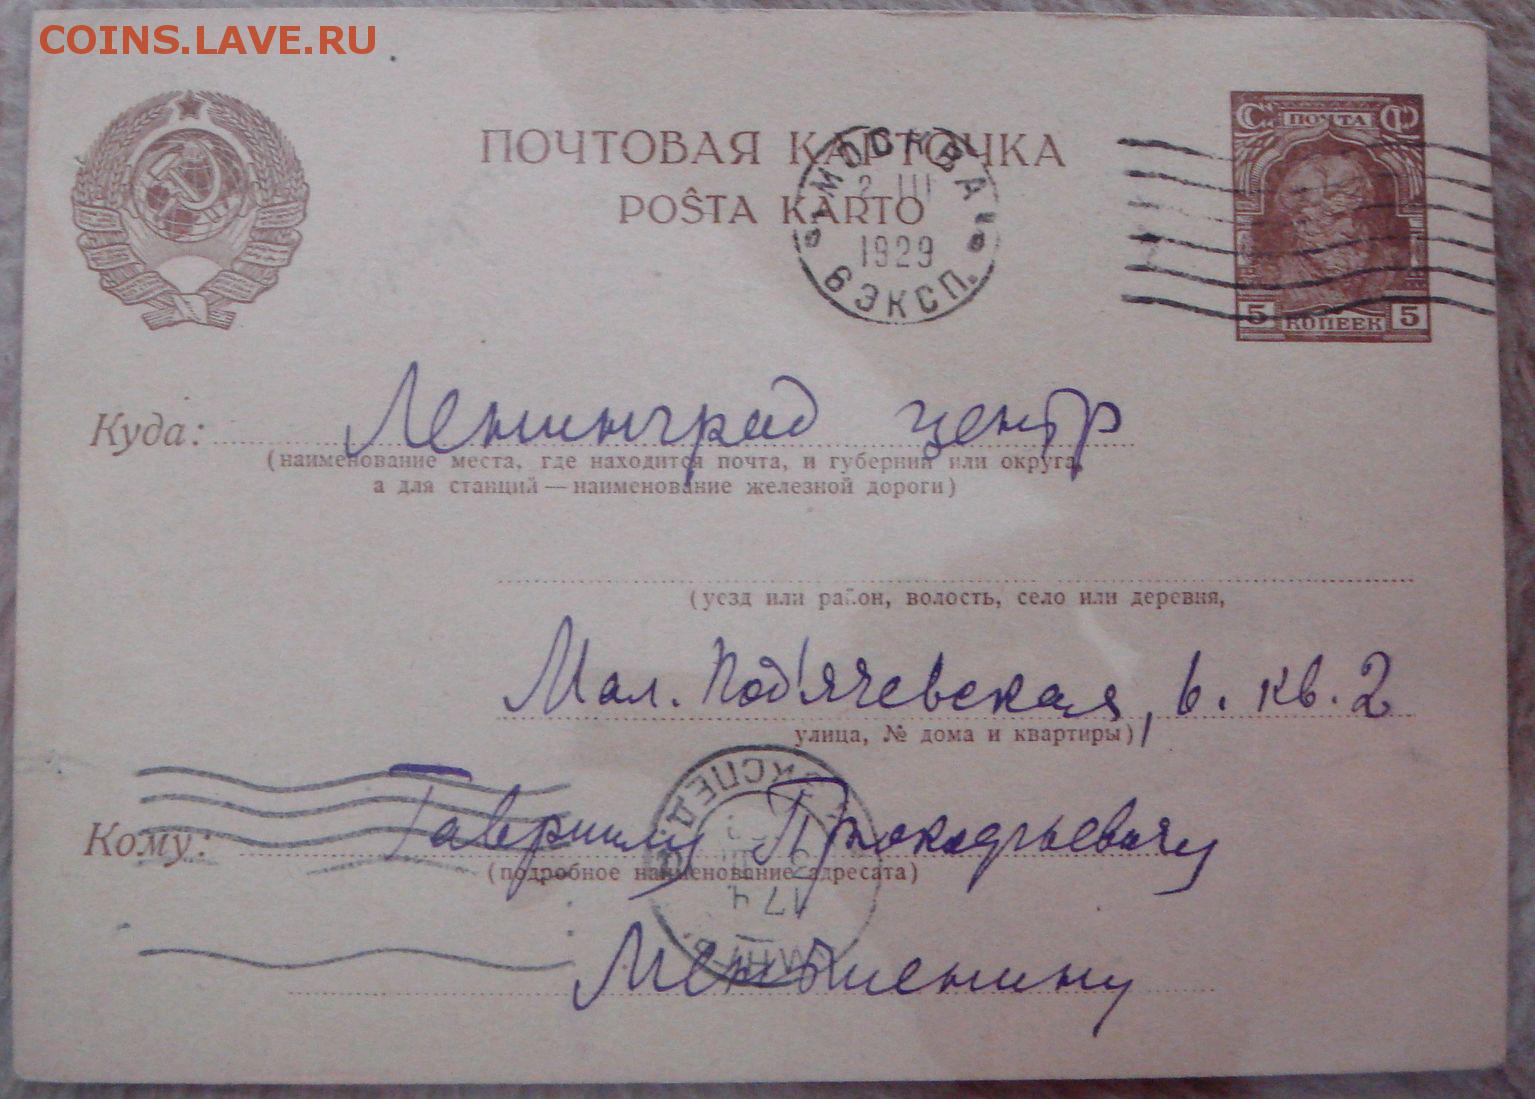 COINS.LAVE.RU
ПОЧТОВАЯ КАРТОЧКА
POŜTA KARTO
ПОЧТА
5 КОПЕЕК 5
МОСКВА
2 III
1929
6 ЭКСП.
Куда: Ленинград центр
(наименование места, где находится почта, и губернии или округа,
а для станций — наименование железной дороги)
(уезд или район, волость, село или деревня,
Мал. Под'ячевская, 6. кв. 2
улица, № дома и квартиры)
Кому: Гавриилу Прокофьевичу
(подробное наименование адресата)
Меньшенину
ЭКСПЕД.
174